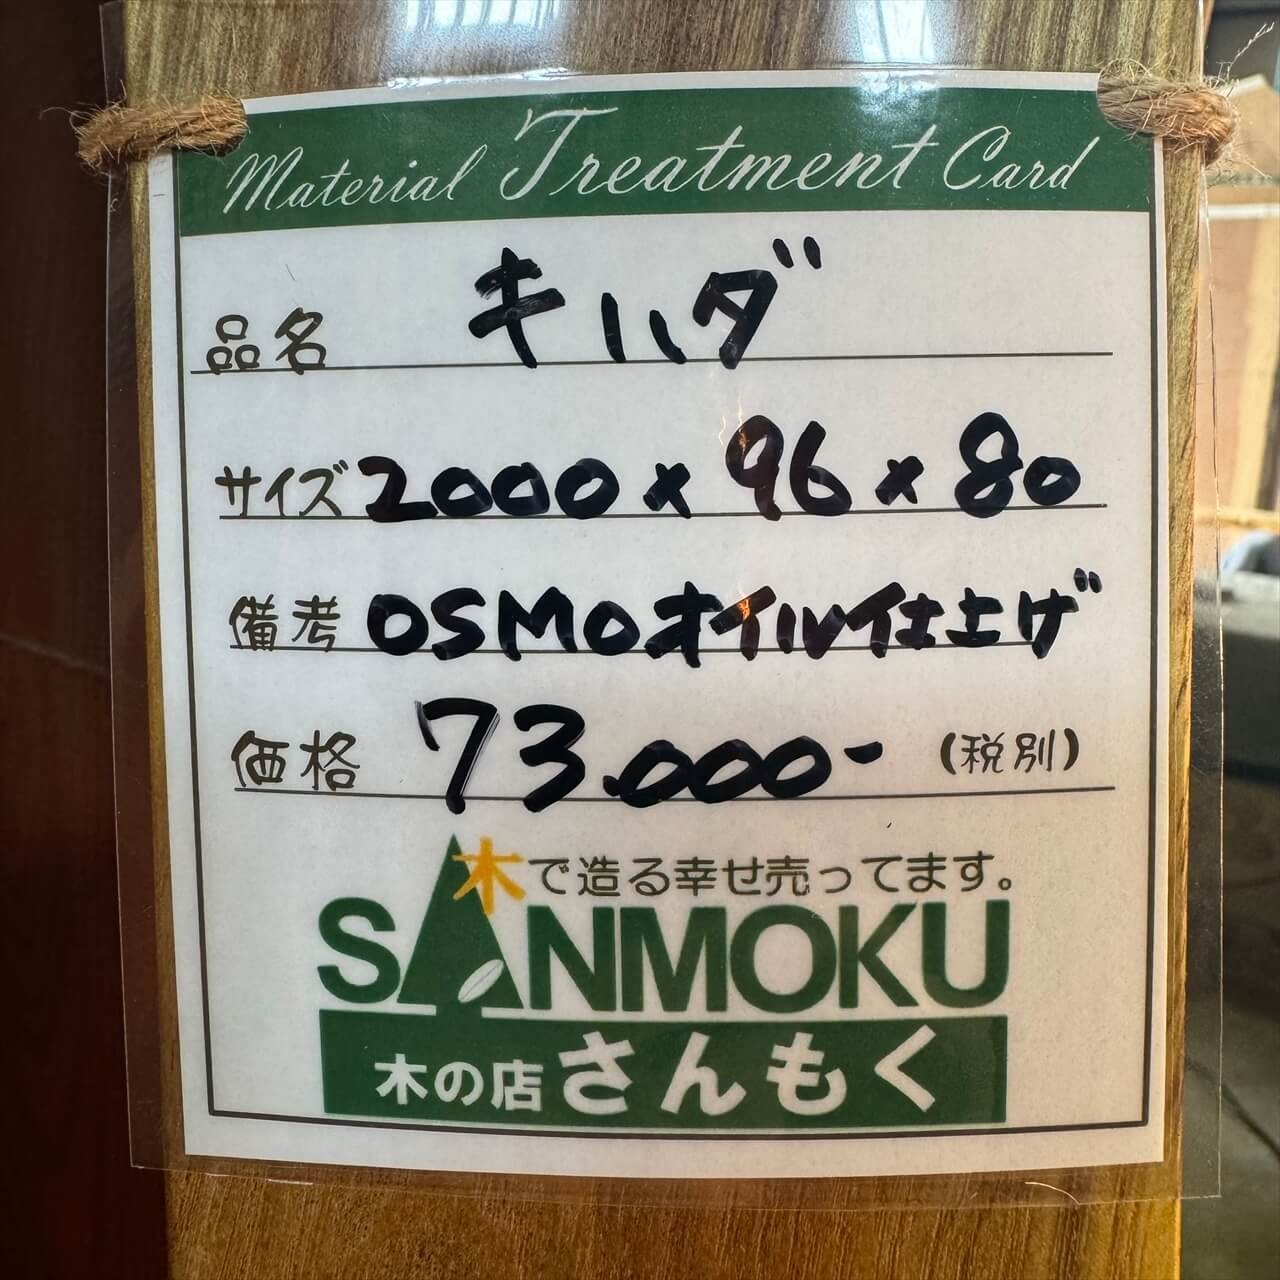 Material Treatment Card
品名 キハダ
サイズ 2000×96×80
備考 OSMOオイル仕上げ
価格 73.000- (税別)
木で造る幸せ売ってます。
SANMOKU
木の店 さんもく